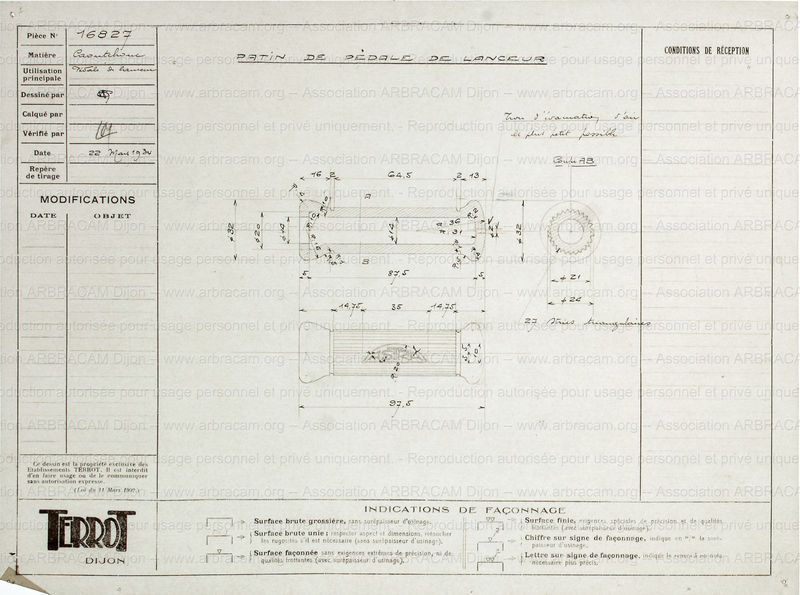 Pièce N° 16827
Matière Caoutchouc
Utilisation principale Pédale de lanceur
Dessiné par
Calqué par
Vérifié par
Date 22 Mai 1934
Repère de tirage
MODIFICATIONS
DATE OBJET
PATIN DE PÉDALE DE LANCEUR
CONDITIONS DE RÉCEPTION
Trou d'évacuation d'air
le plus petit possible
Coupe AB
16 2 64,5 2 13
A
ø 32
ø 20
ø 14
B
ø 32
5 87,5 5
ø 21
ø 24
14,75 35 14,75
27 stries triangulaires
97,5
Ce dessin est la propriété exclusive des
Etablissements TERROT. Il est interdit
d'en faire usage ou de le communiquer
sans autorisation expresse.
(Loi du 11 Mars 1902.)
TERROT
DIJON
INDICATIONS DE FAÇONNAGE
Surface brute grossière, sans surépaisseur d'usinage.
Surface brute unie; respecter aspect et dimensions, retoucher
les rugosités s'il est nécessaire (sans surépaisseur d'usinage).
Surface façonnée sans exigences extrêmes de précision, ni de
qualités frottantes (avec surépaisseur d'usinage).
Surface finie, exigences spéciales de précision et de qualités
frottantes (avec surépaisseur d'usinage).
Chiffre sur signe de façonnage, indique en m/m la surépaisseur d'usinage.
Lettre sur signe de façonnage, indique le renvoi à une note
nécessaire plus précis.
www.arbracam.org – Association ARBRACAM Dijon – Reproduction autorisée pour usage personnel et privé uniquement.